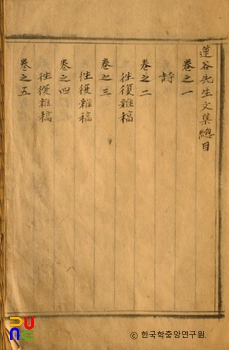 蓮谷先生文集總目
卷之一
詩
卷之二
往復雜稿
卷之三
往復雜稿
卷之四
往復雜稿
卷之五
ⓒ 한국학중앙연구원